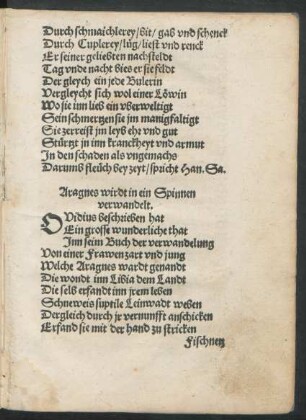 Durch schmaichlerey/bit/gab vnd schenck
Durch Cuplerey/lüg/liest vnd renck
Er seiner geliebten nachsteldt
Tag vnde nacht bies er sie feldt
Der gleych ein jede Bulerin
Vergleycht sich wol einer Löwin
Wo sie inn lieb ein vberweltigt
Sein schmertzen sie im manigfaltigt
Sie zerreist jm leyb ehr vnd gut
Stürtzt jn inn kranckheyt vnd armut
In den schaden als vngemachs
Darumb fleüch bey zeyt/spricht Han. Sa.
Aragnes wirdt in ein Spinnen
verwandelt.
OVidius beschrieben hat
Ein grosse wunderliche that
Inn seim Buch der verwandelung
Von einer Frawen zart vnd jung
Welche Aragnes wardt genandt
Die wondt inn Libia dem Landt
Die selb erfandt inn jrem leben
Schneweis suptile Leinwadt weben
Dergleich durch jr vernunfft anschicken
Erfand sie mit der hand zu stricken
Fischnetz